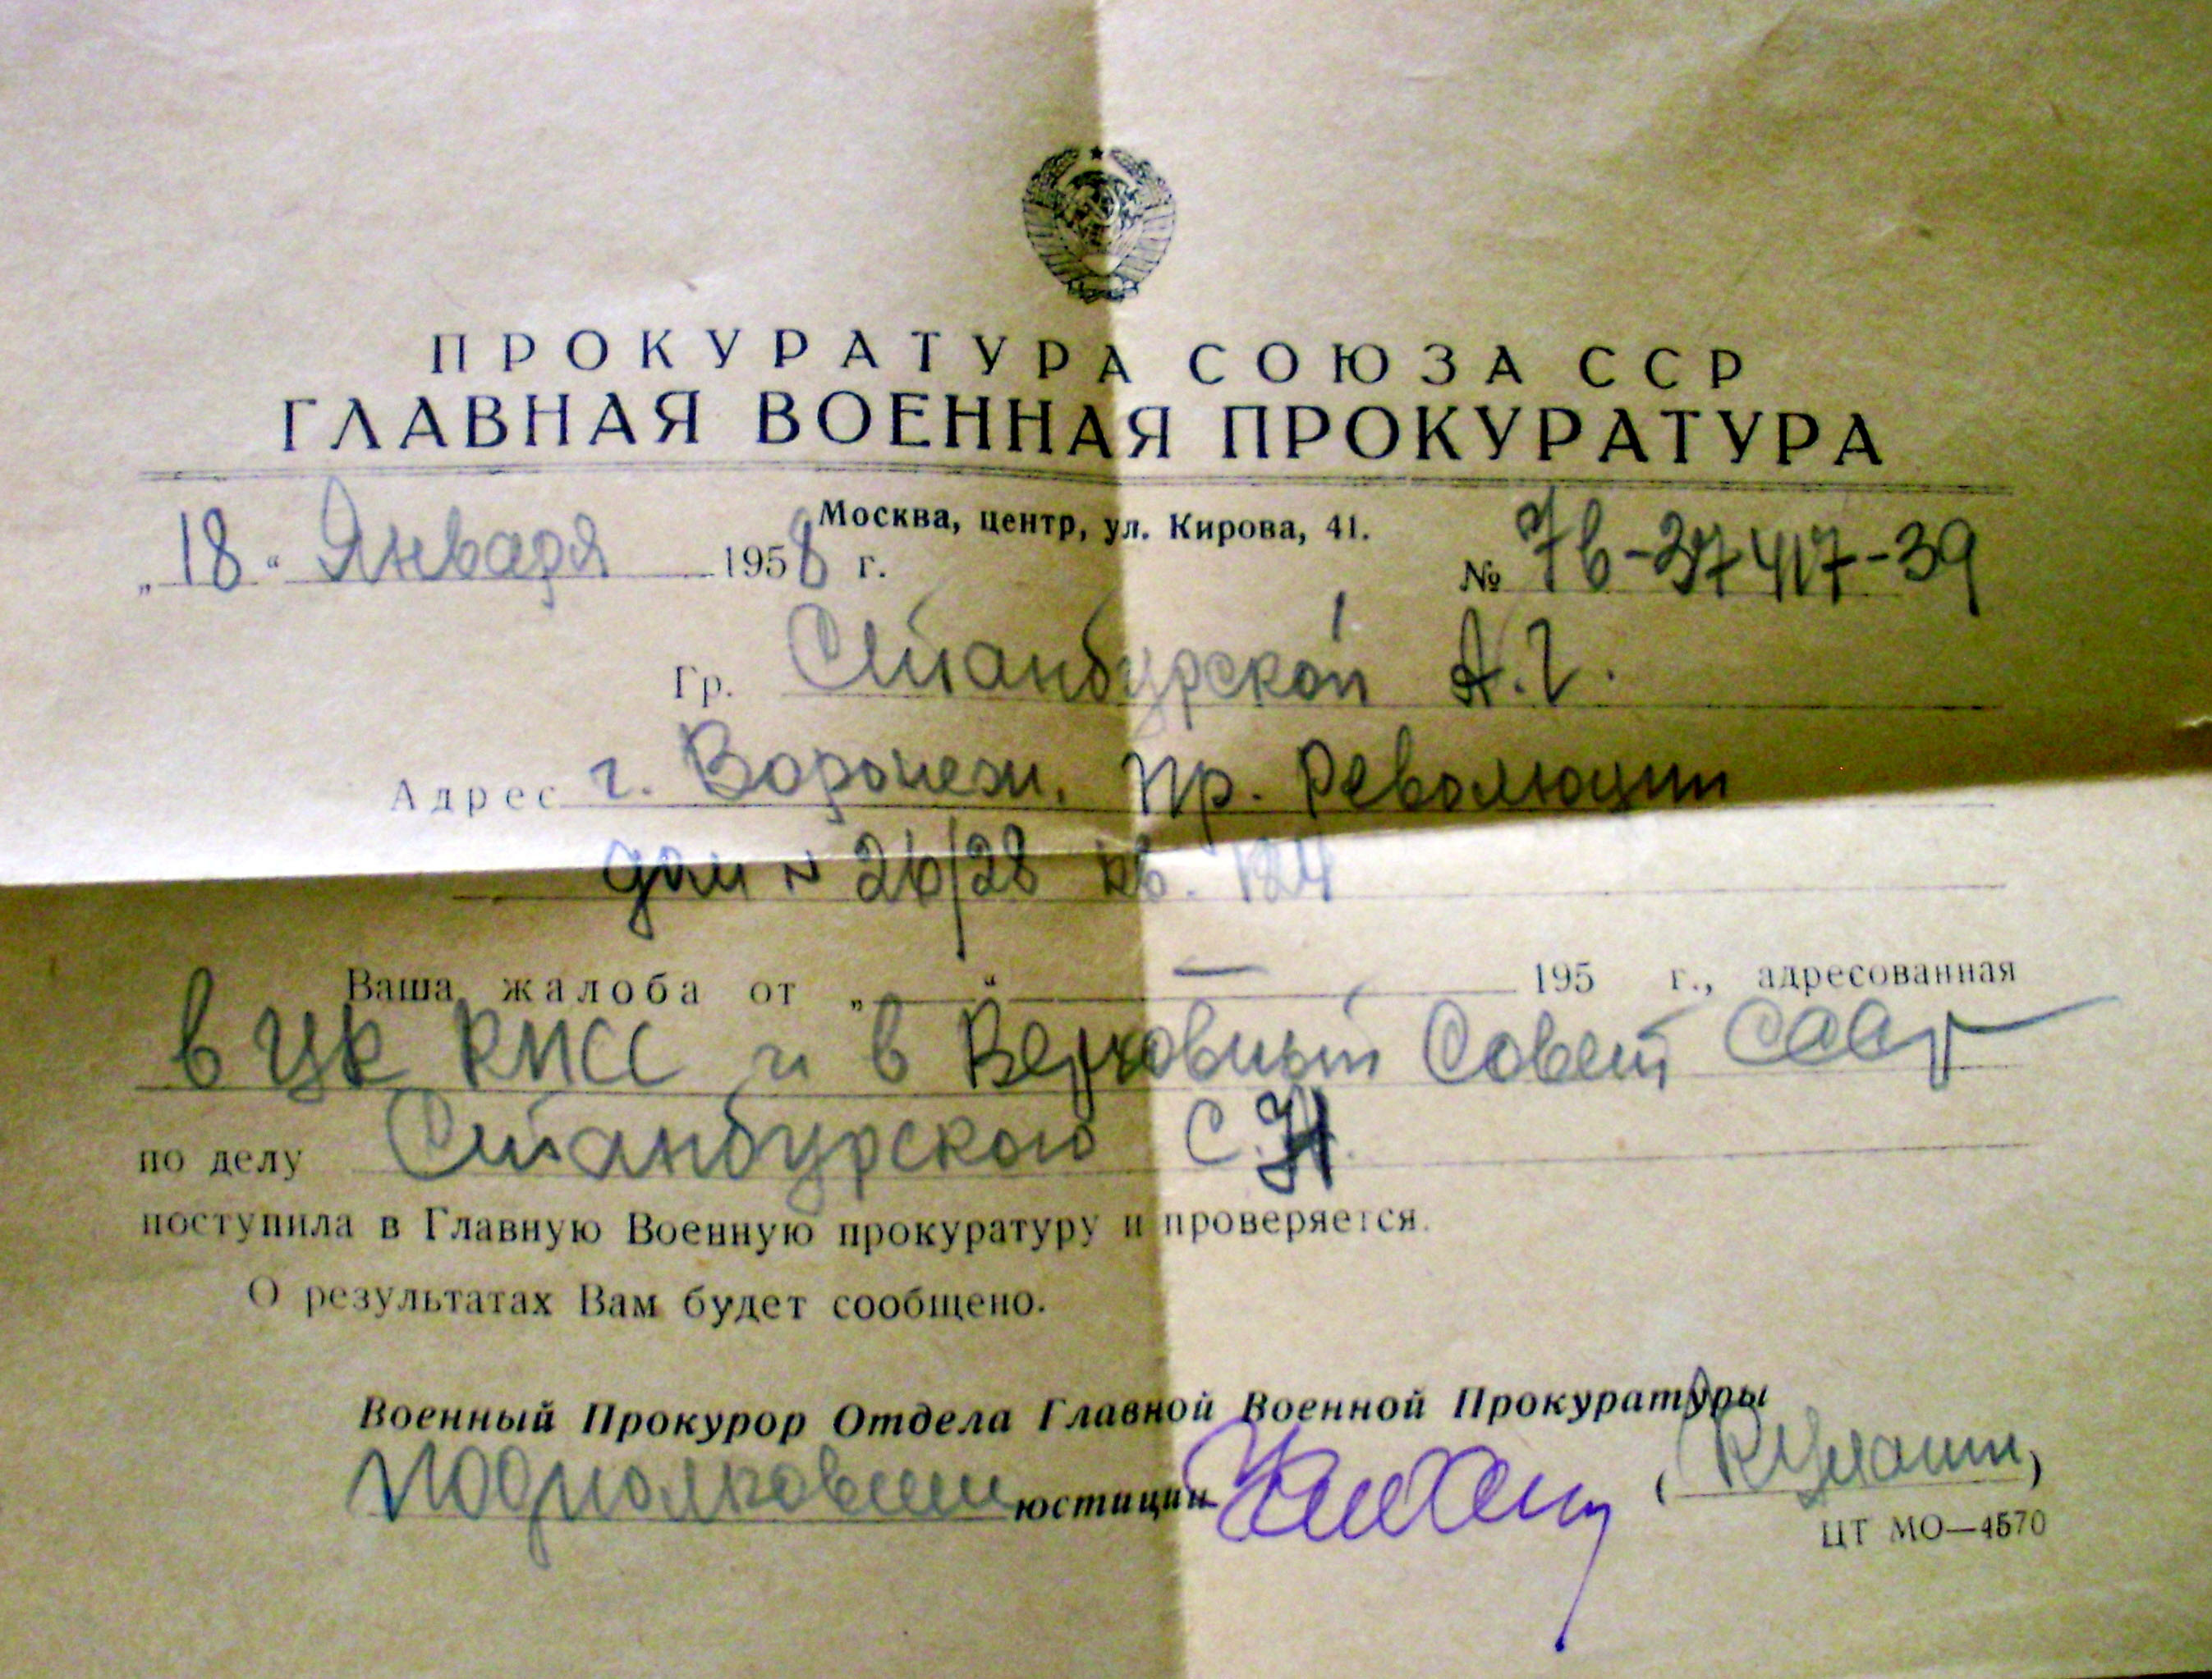 ПРОКУРАТУРА СОЮЗА ССР
ГЛАВНАЯ ВОЕННАЯ ПРОКУРАТУРА
Москва, центр, ул. Кирова, 41.
„18“ Января 1958 г. № 7в-37417-39
Гр. Станбурской А.Г.
Адрес г. Воронеж, пр. Революции
дом N 26/28 кв.
Ваша жалоба от „ “ — 195 г., адресованная
в ЦК КПСС и в Верховный Совет СССР
по делу Станбурского С.Н.
поступила в Главную Военную прокуратуру и проверяется.
О результатах Вам будет сообщено.
Военный Прокурор Отдела Главной Военной Прокуратуры
Подполковник юстиции ( )
ЦТ МО—4570